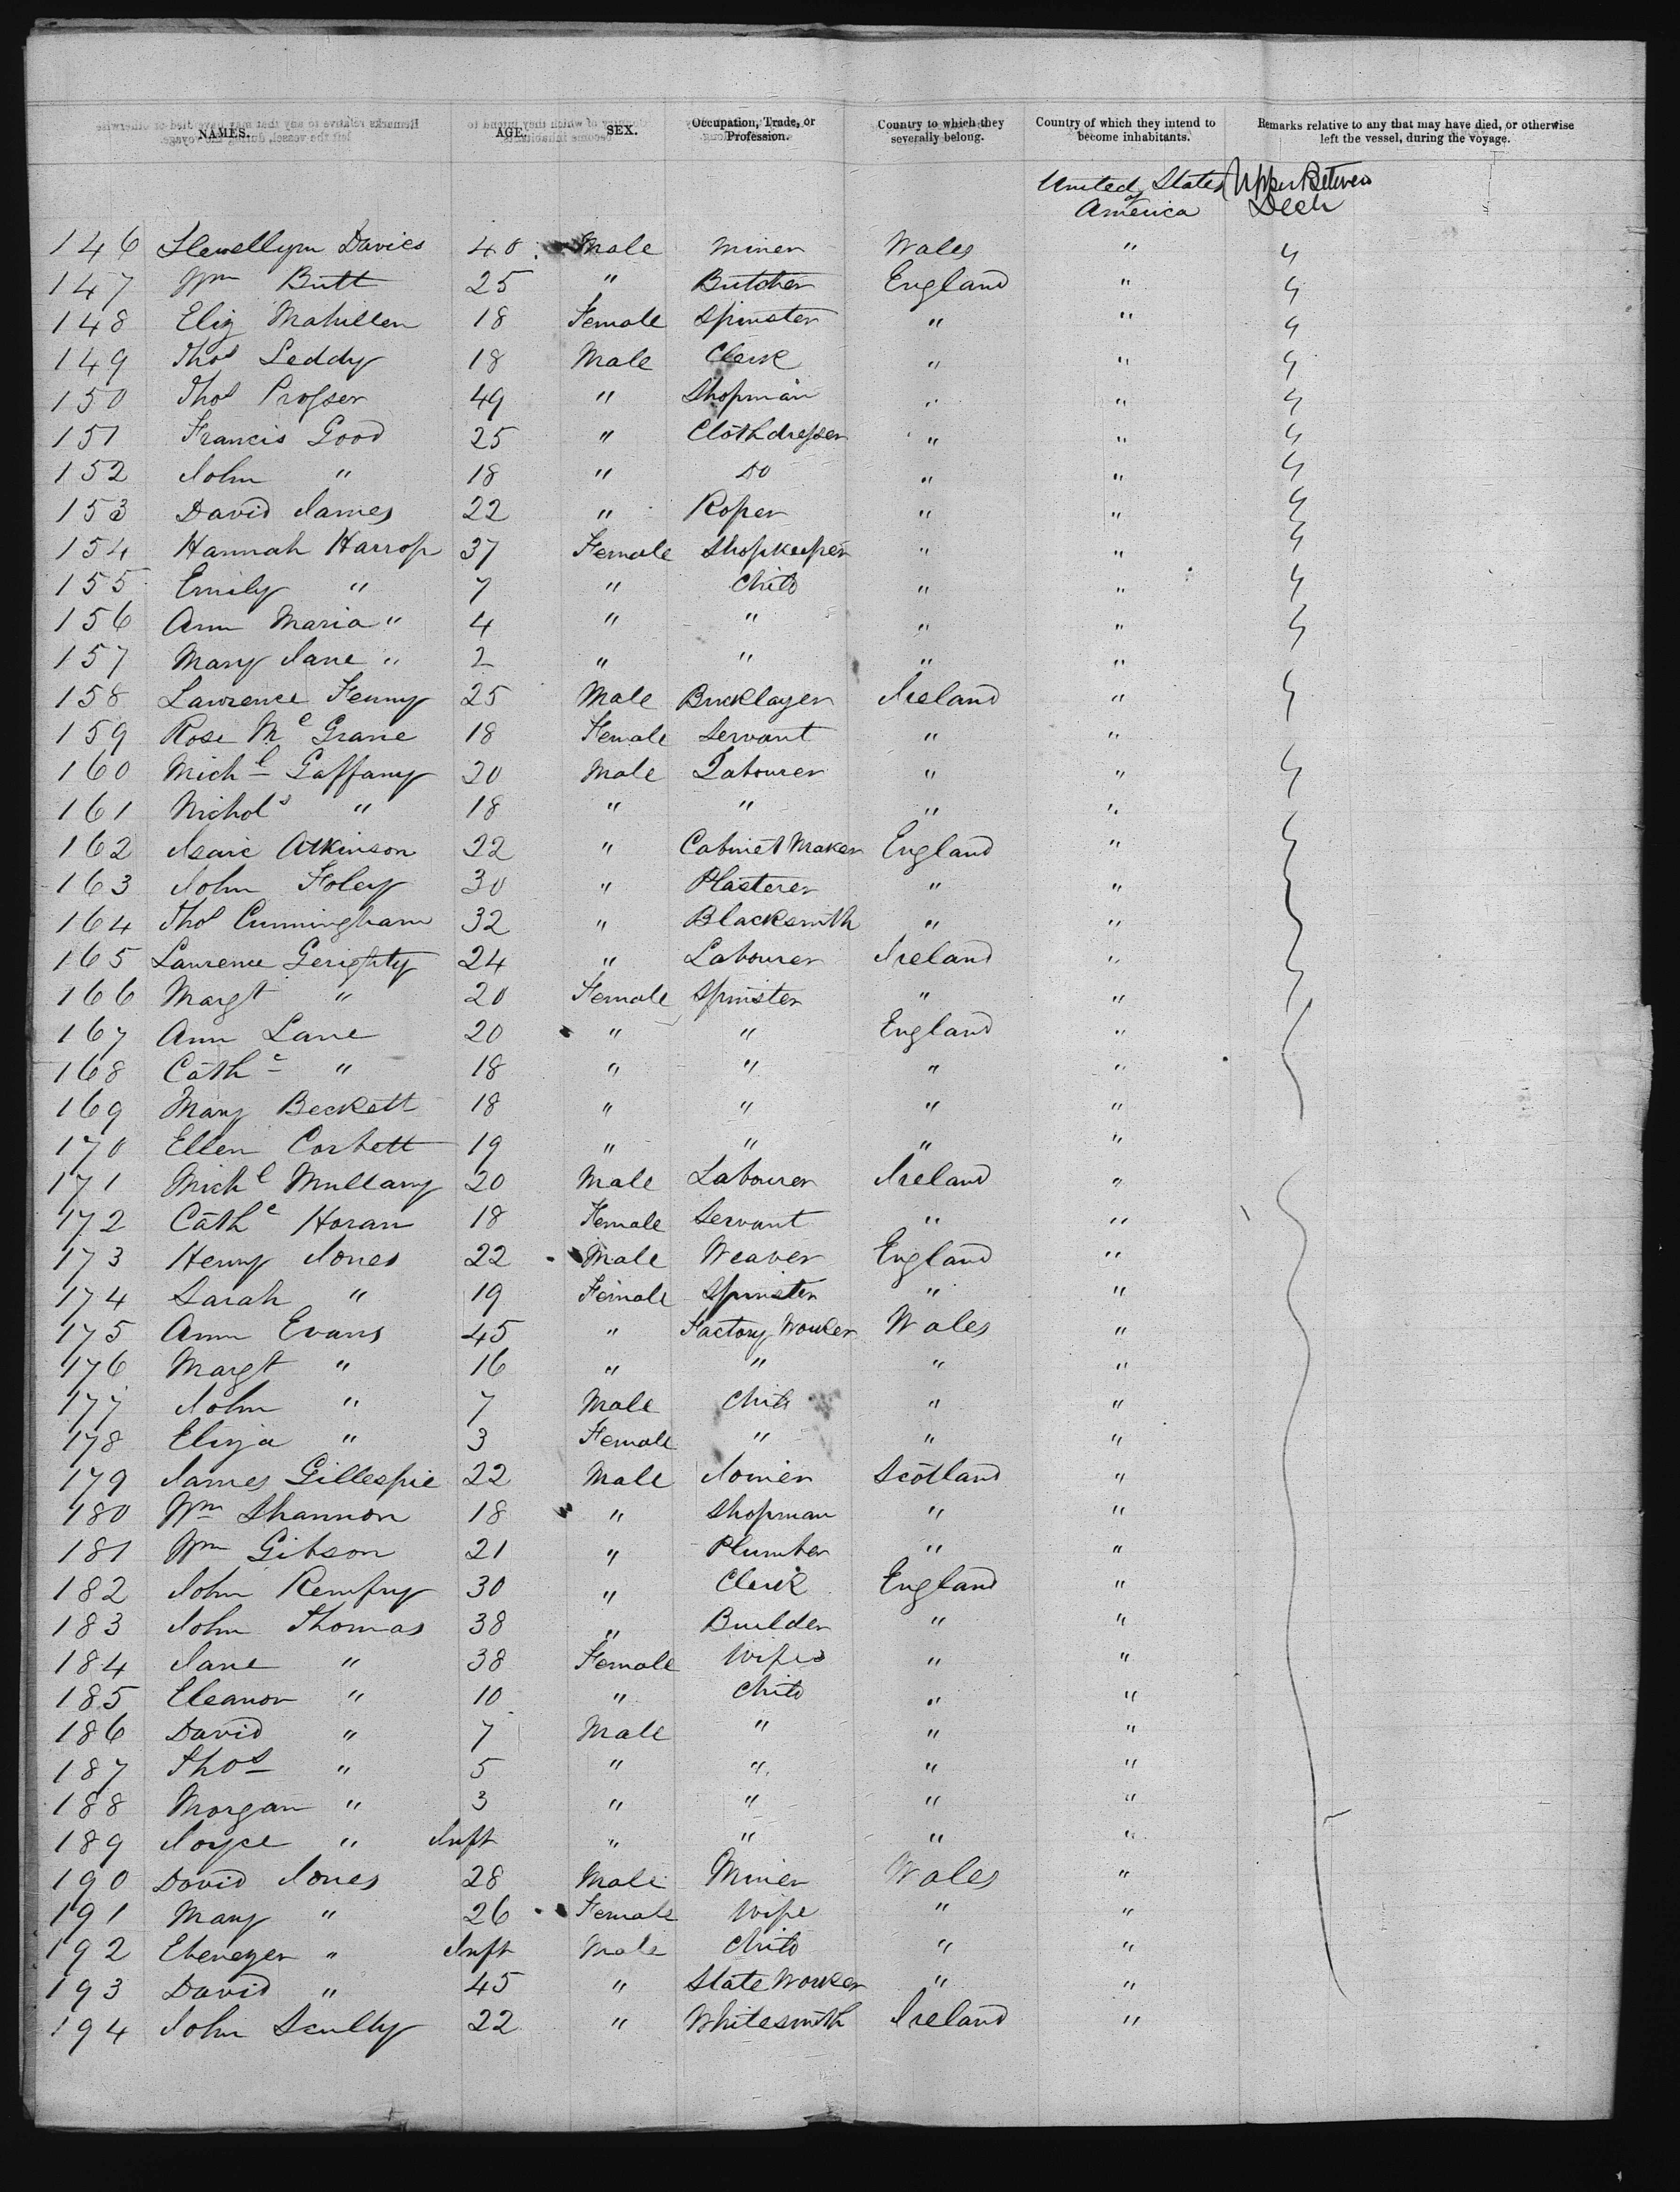 NAMES. AGE. SEX. Occupation, Trade, or Profession. Country to which they severally belong. Country of which they intend to become inhabitants. Remarks relative to any that may have died, or otherwise left the vessel, during the voyage.
United States of America Upper Between Deck
146 Llewellyn Davies 40 Male Miner Wales " "
147 Wm Butt 25 " Butcher England " "
148 Eliz Mahillen 18 Female Spinster " " "
149 Thos Leddy 18 Male Clerk " " "
150 Thos Prosser 49 " Shopman " " "
151 Francis Good 25 " Clothdresser " " "
152 John " 18 " Do " " "
153 David James 22 " Roper " " "
154 Hannah Harrop 37 Female Shopkeeper " " "
155 Emily " 7 " Child " " "
156 Ann Maria " 4 " " " " "
157 Mary Jane " 2 " " " "
158 Lawrence Fenny 25 Male Bricklayer Ireland " "
159 Rose Mc Grane 18 Female Servant " "
160 Michl Gaffany 20 Male Labourer " " "
161 Nichols " 18 " " " "
162 Isaic Atkinson 22 " Cabinet Maker England "
163 John Foley 30 " Plasterer " "
164 Thos Cunningham 32 " Blacksmith " "
165 Laurence Gerighty 24 " Labourer Ireland "
166 Margt " 20 Female Spinster " "
167 Ann Lane 20 " " England "
168 Cathe " 18 " " " "
169 Mary Beckett 18 " " " "
170 Ellen Corbett 19 " " " "
171 Michl Mullany 20 Male Labourer Ireland "
172 Cathe Horan 18 Female Servant " "
173 Henry Jones 22 Male Weaver England "
174 Sarah " 19 Female Spinster " "
175 Ann Evans 45 " Factory Worker Wales "
176 Margt " 16 " " " "
177 John " 7 Male Child " "
178 Eliza " 3 Female " " "
179 James Gillespie 22 Male Joiner Scotland "
180 Wm Shannon 18 " Shopman " "
181 Wm Gibson 21 " Plumber " "
182 John Remfry 30 " Clerk England "
183 John Thomas 38 " Builder " "
184 Jane " 38 Female Wife " "
185 Eleanor " 10 " Child " "
186 David " 7 Male " " "
187 Thos " 5 " " " "
188 Morgan " 3 " " " "
189 Joyce " Inft " " " "
190 David Jones 28 Male Miner Wales "
191 Mary " 26 Female Wife " "
192 Ebenezer " Inft Male Child " "
193 David " 45 " Slate Worker " "
194 John Scully 22 " Whitesmith Ireland "